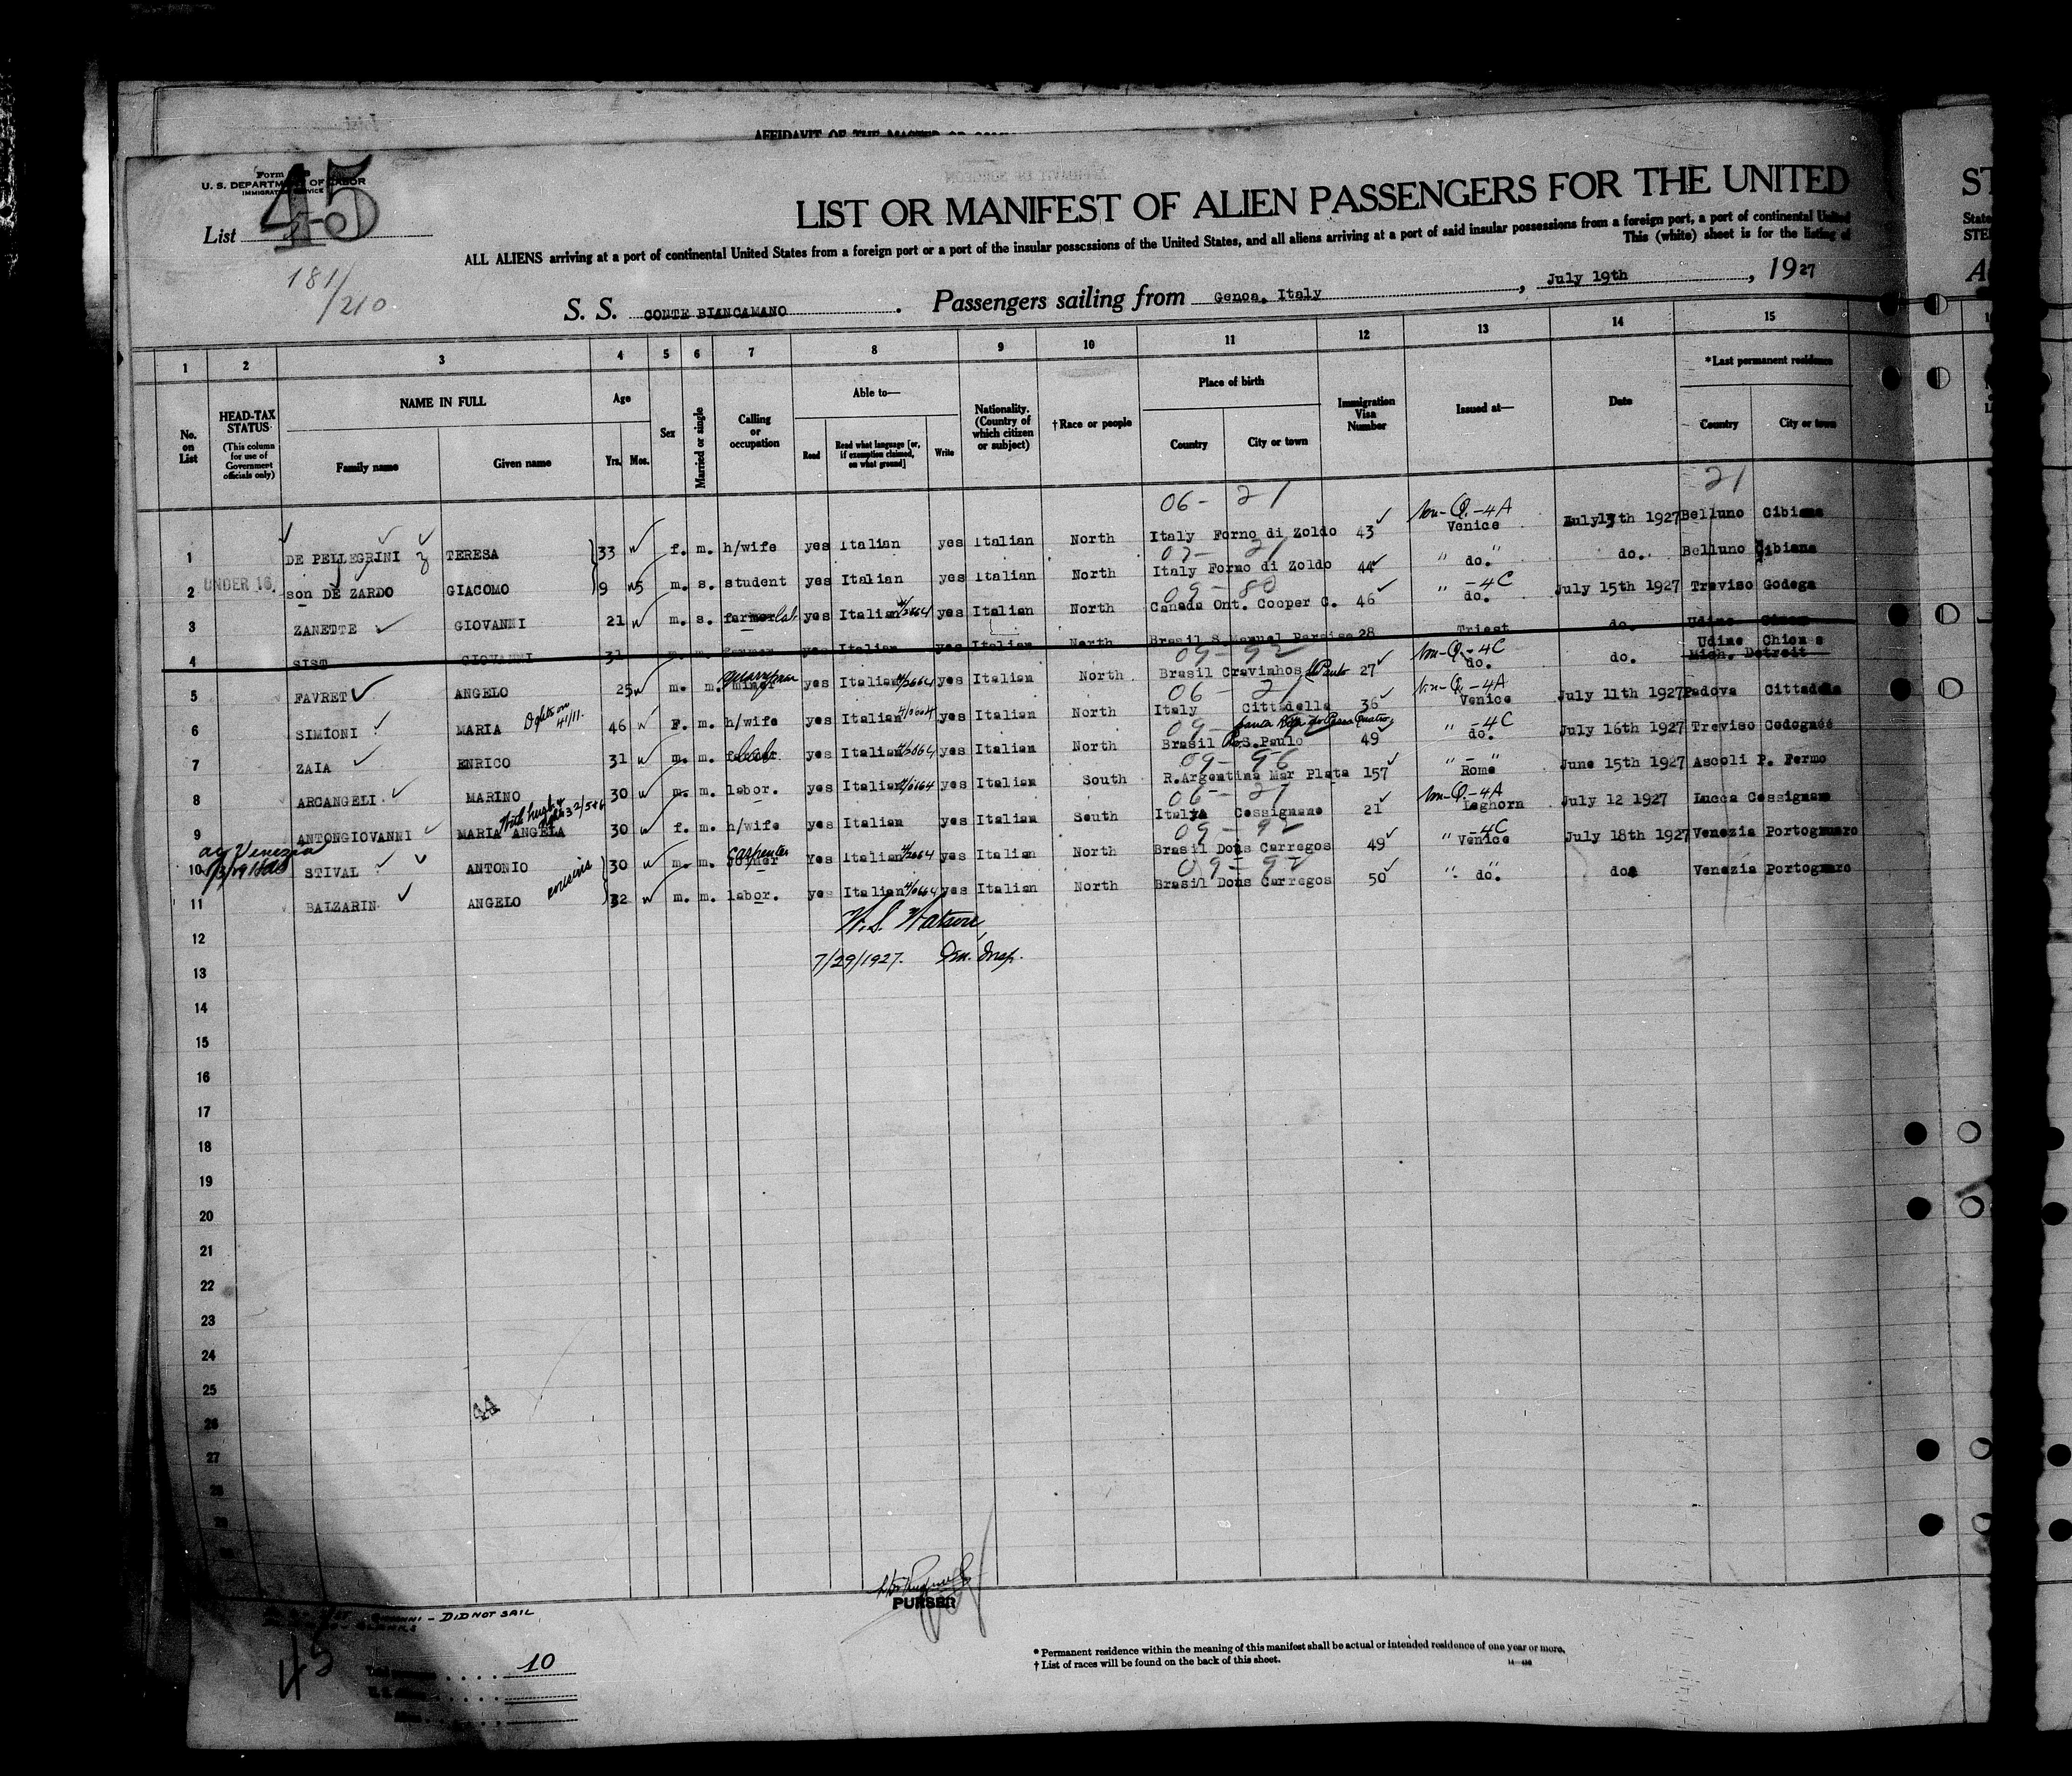 AFFIDAVIT OF THE MASTER OR
Form
U. S. DEPARTMENT OF LABOR
IMMIGRATION SERVICE
List 45
181/210
LIST OR MANIFEST OF ALIEN PASSENGERS FOR THE UNITED
ALL ALIENS arriving at a port of continental United States from a foreign port or a port of the insular possessions of the United States, and all aliens arriving at a port of said insular possessions from a foreign port, a port of continental United
This (white) sheet is for the listing of
S. S. CONTE BIANCAMANO. Passengers sailing from Genoa, Italy, July 19th, 1927
1 2 3 4 5 6 7 8 9 10 11 12 13 14 15
No. on List
HEAD-TAX STATUS (This column for use of Government officials only)
NAME IN FULL
Family name Given name
Age
Yrs. Mos.
Sex
Married or single
Calling or occupation
Able to—
Read
Read what language [or, if exemption claimed, on what ground]
Write
Nationality. (Country of which citizen or subject)
†Race or people
Place of birth
Country City or town
Immigration Visa Number
Issued at—
Date
*Last permanent residence
Country City or town
06- 21 Non-Q.-4A 21
1 DE PELLEGRINI TERESA 33 f. m. h/wife yes Italian yes Italian North Italy Forno di Zoldo 43 Venice July 13th 1927 Belluno Cibiana
2 UNDER 16. son DE ZARDO GIACOMO 9 m. s. student yes Italian yes Italian North Italy Forno di Zoldo 44 " do. " do. Belluno Cibiana
09- 80 " -4C
3 ZANETTE GIOVANNI 21 m. s. farmer lab. yes Italian yes Italian North Canada Ont. Cooper C. 46 do. July 15th 1927 Treviso Godega
4 SIST GIOVANNI 31 m. m. farmer yes Italian yes Italian North Brasil S. Manuel Paraiso 28 Triest do. Udine
09-92 Non-Q.-4C Udine Chions
5 FAVRET ANGELO 25 m. m. miner quarryman yes Italian yes Italian North Brasil Cravinhos S. Paulo 27 do. do. Mich. Detroit
06- 21 Non-Q.-4A
6 SIMIONI MARIA 46 F. m. h/wife yes Italian yes Italian North Italy Cittadella 36 Venice July 11th 1927 Padova Cittadella
09- " -4C
7 ZAIA ENRICO 31 m. m. yes Italian yes Italian North Brasil S. Paulo 49 do. July 16th 1927 Treviso Codognè
09-96 " - "
8 ARCANGELI MARINO 30 m. m. labor. yes Italian yes Italian South R. Argentina Mar Plata 157 Rome June 15th 1927 Ascoli P. Fermo
06- 21 Non-Q.-4A
9 ANTONGIOVANNI MARIA ANGELA 30 f. m. h/wife yes Italian yes Italian South Italy Cossignano 21 Leghorn July 12 1927 Lucca Cossignano
09-92 " -4C
10 STIVAL ANTONIO 30 m. m. carpenter Yes Italian yes Italian North Brasil Dous Carregos 49 Venice July 18th 1927 Venezia Portogruaro
cousins
09-92
11 BALZARIN ANGELO 32 m. m. labor. yes Italian yes Italian North Brasil Dous Carregos 50 " do. " do. Venezia Portogruaro
12 W. S. Watson,
7/29/1927. Imm. Insp.
13
14
15
16
17
18
19
20
21
22
23
24
25
44
26
27
28
29
30
PURSER
GIOVANNI - DID NOT SAIL
BLANKS
45
10
* Permanent residence within the meaning of this manifest shall be actual or intended residence of one year or more.
† List of races will be found on the back of this sheet.